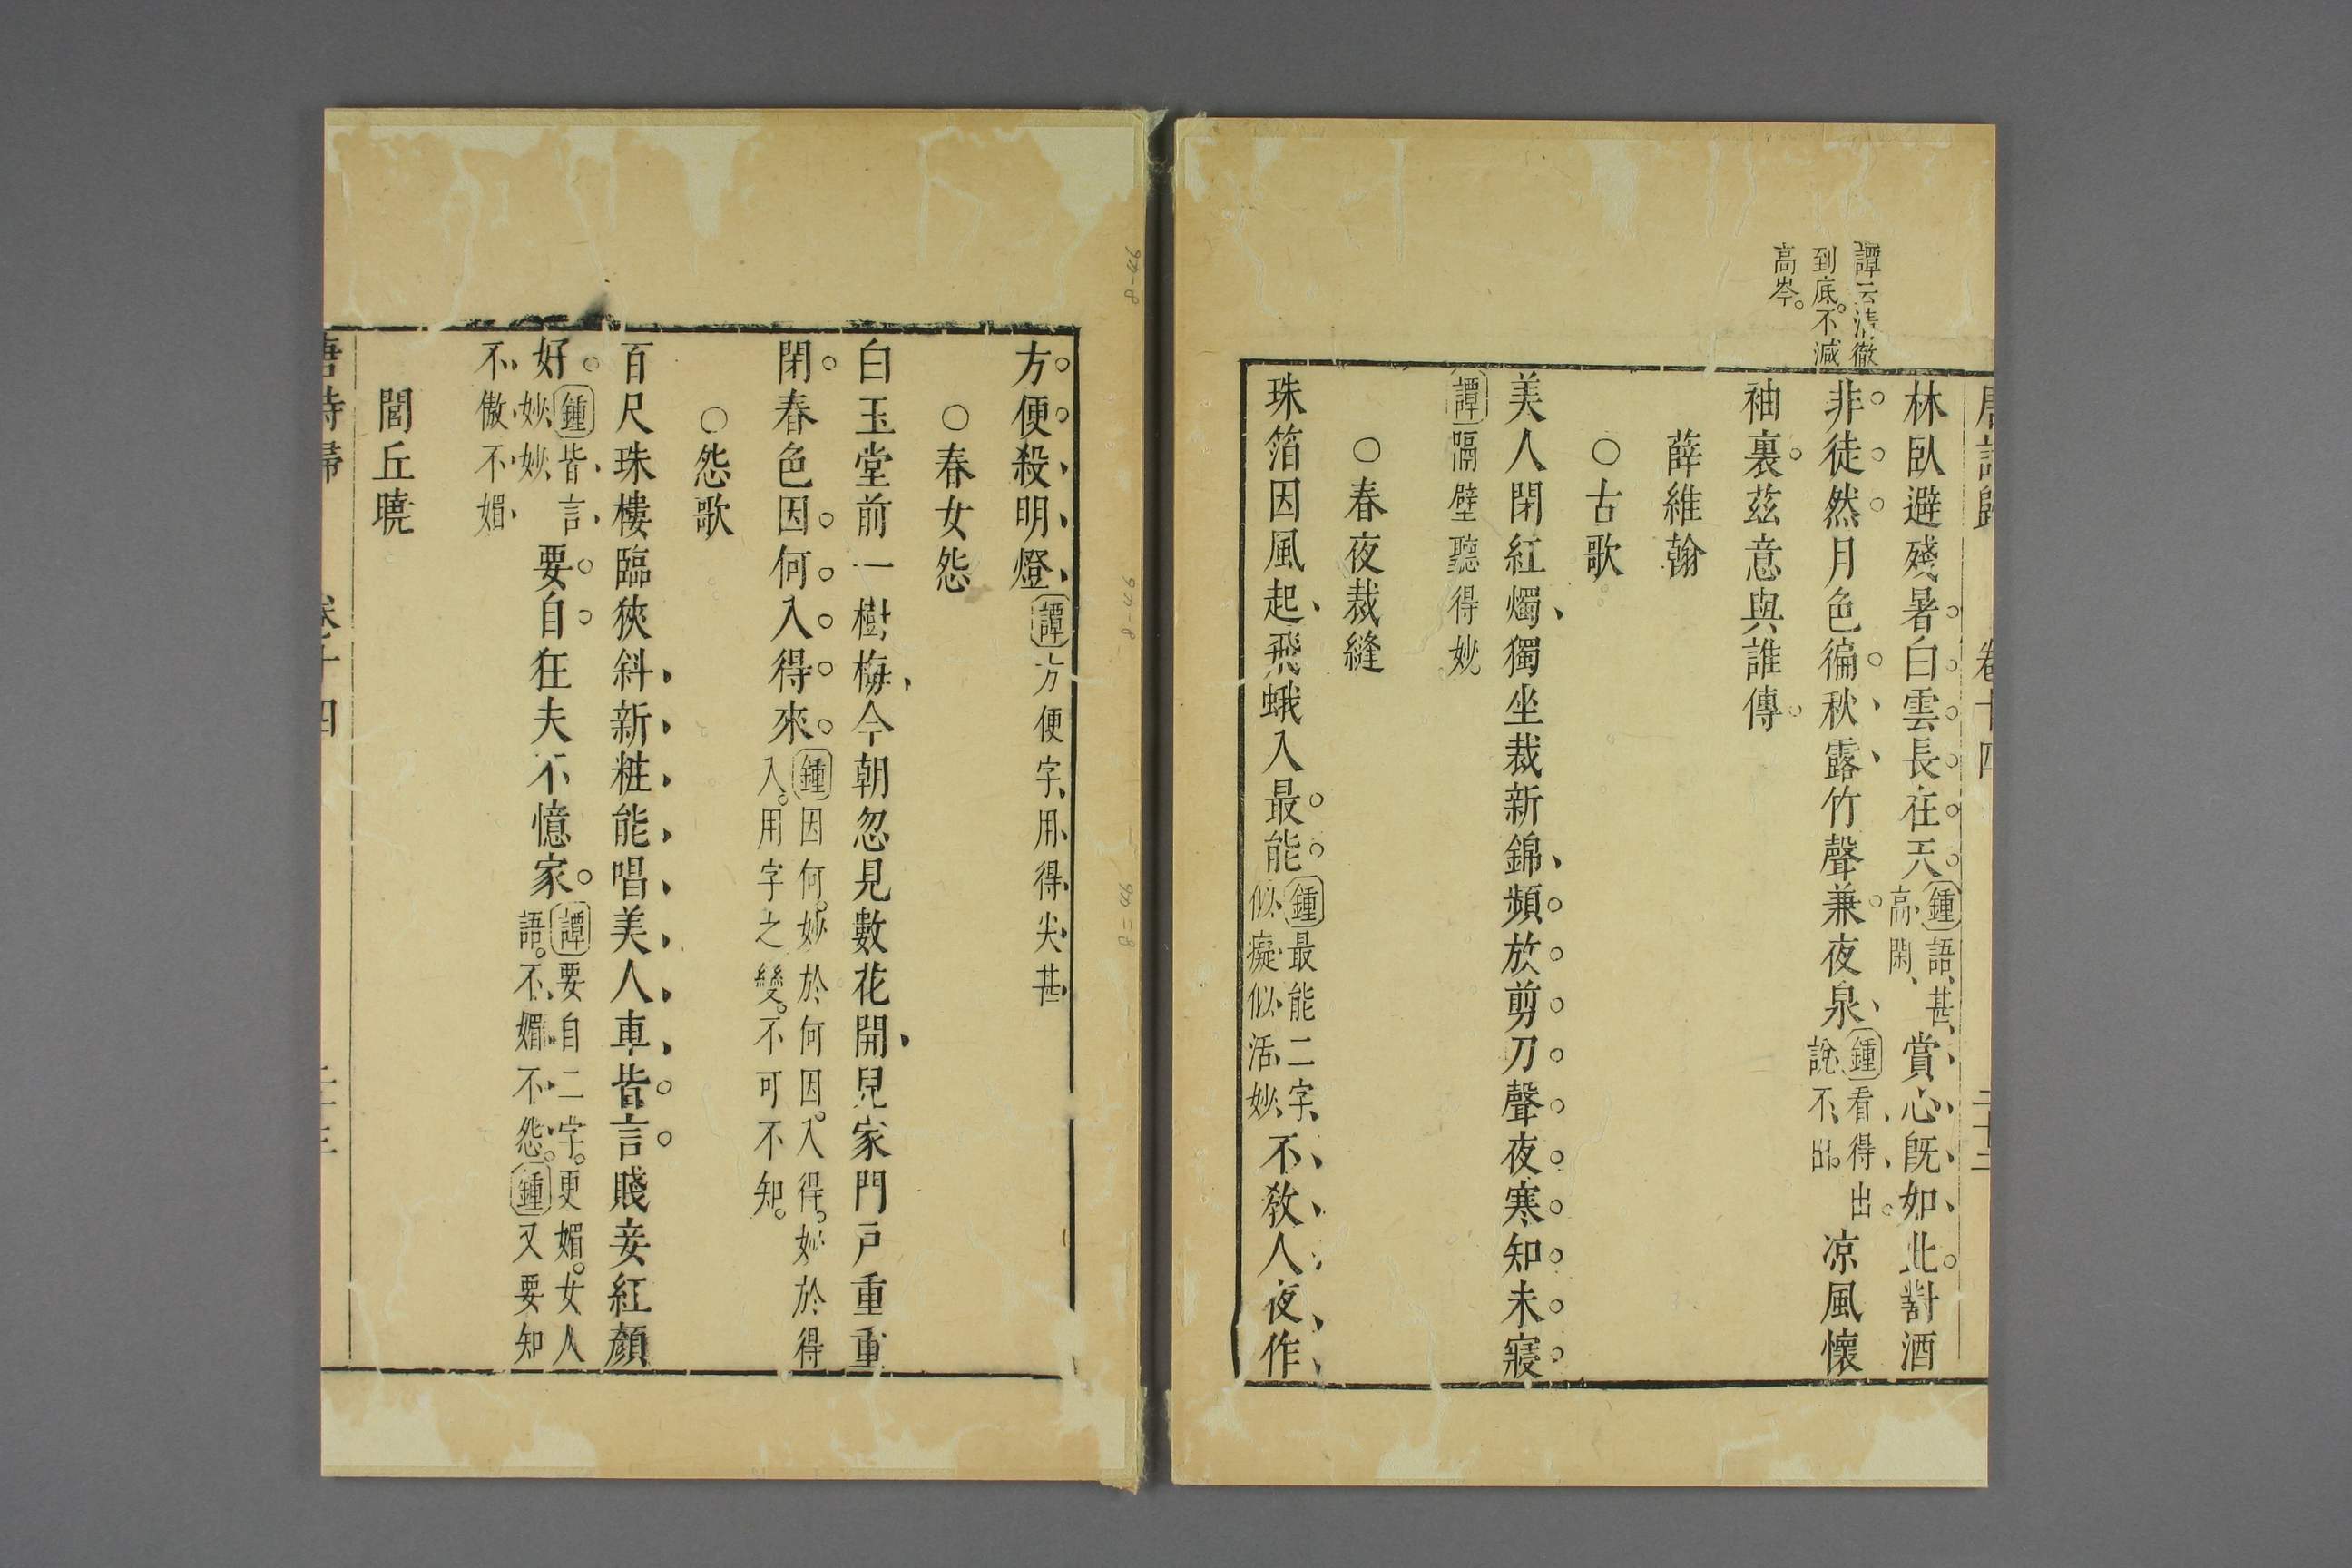 唐詩歸 卷十四
譚云清徹
到底。不減
高岑。
林臥避殘暑。白雲長在天。鍾語甚高閑、賞心旣如此。對酒
非徒然月色徧秋露竹聲兼夜泉鍾看得出。說不出。凉風懷
袖裏。茲意與誰傳。
薛維翰
○古歌
美人閉紅燭、獨坐裁新錦、頻放剪刀聲夜寒知未寢。
譚隔壁聽得妙
○春夜裁縫
珠箔因風起、飛蛾入最能。鍾最能二字、似癡似活妙、不敎人夜作、
方便殺明燈、譚方便字、用得尖甚
○春女怨
白玉堂前一樹梅、今朝忽見數花開、兒家門戶重重
閉。春色因何入得來。鍾因何。妙於何因。入得。妙於得入。用字之變。不可不知。
○怨歌
百尺珠樓臨狹斜、新粧能唱美人車、皆言賤妾紅顏
好。鍾皆言、妙妙要自狂夫不憶家。譚要自二字。更媚。女人語。不媚不怨。鍾又要知
不傲不媚
閭丘曉
唐詩歸 卷十四